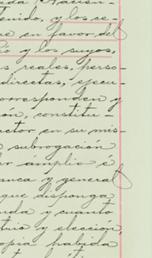 tenido, y los re-
que en favor del
io y los suyos,
s reales, perso-
directas, ejecu-
orresponden y
on, constitu-
actor en su mis-
subrogación
r amplia é
anca y general
que disponga
nda y cuanto
trio y eleccion,
opia habida